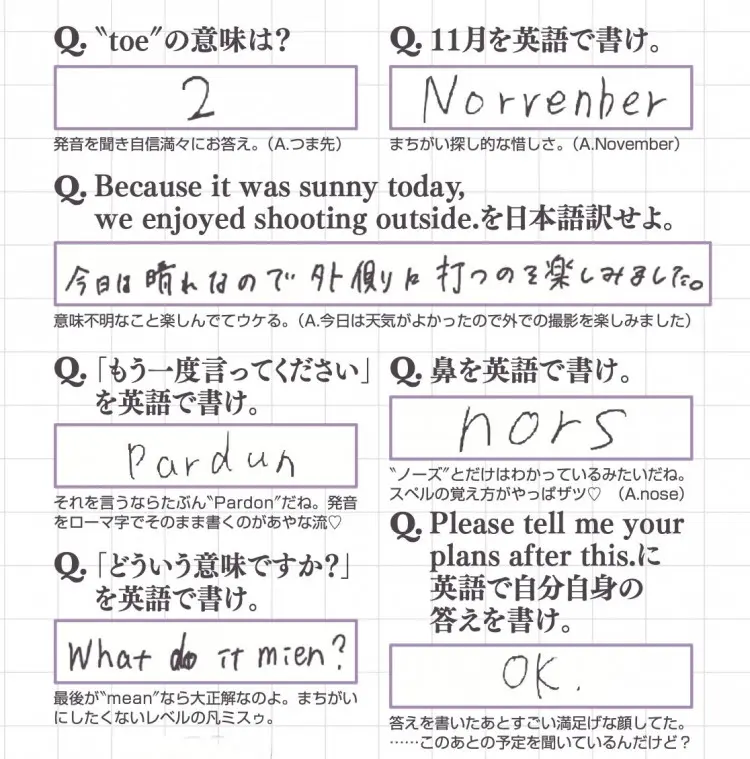 Q. "toe"の意味は?
2
発音を聞き自信満々にお答え。(A.つま先)
Q. 11月を英語で書け。
Norvenber
まちがい探し的な惜しさ。(A.November)
Q. Because it was sunny today,
we enjoyed shooting outside.を日本語訳せよ。
今日は晴れなので外側りに打つのを楽しみました。
意味不明なこと楽しんでてウケる。(A.今日は天気がよかったので外での撮影を楽しみました)
Q. 「もう一度言ってください」
を英語で書け。
Pardun
それを言うならたぶん"Pardon"だね。発音
をローマ字でそのまま書くのがあやな流♡
Q. 鼻を英語で書け。
nors
"ノーズ"とだけはわかっているみたいだね。
スペルの覚え方がやっぱザツ♡ (A.nose)
Q. 「どういう意味ですか?」
を英語で書け。
What do it mien?
最後が"mean"なら大正解なのよ。まちがい
にしたくないレベルの凡ミスゥ。
Q. Please tell me your
plans after this.に
英語で自分自身の
答えを書け。
OK.
答えを書いたあとすごい満足げな顔してた。
……このあとの予定を聞いているんだけど?